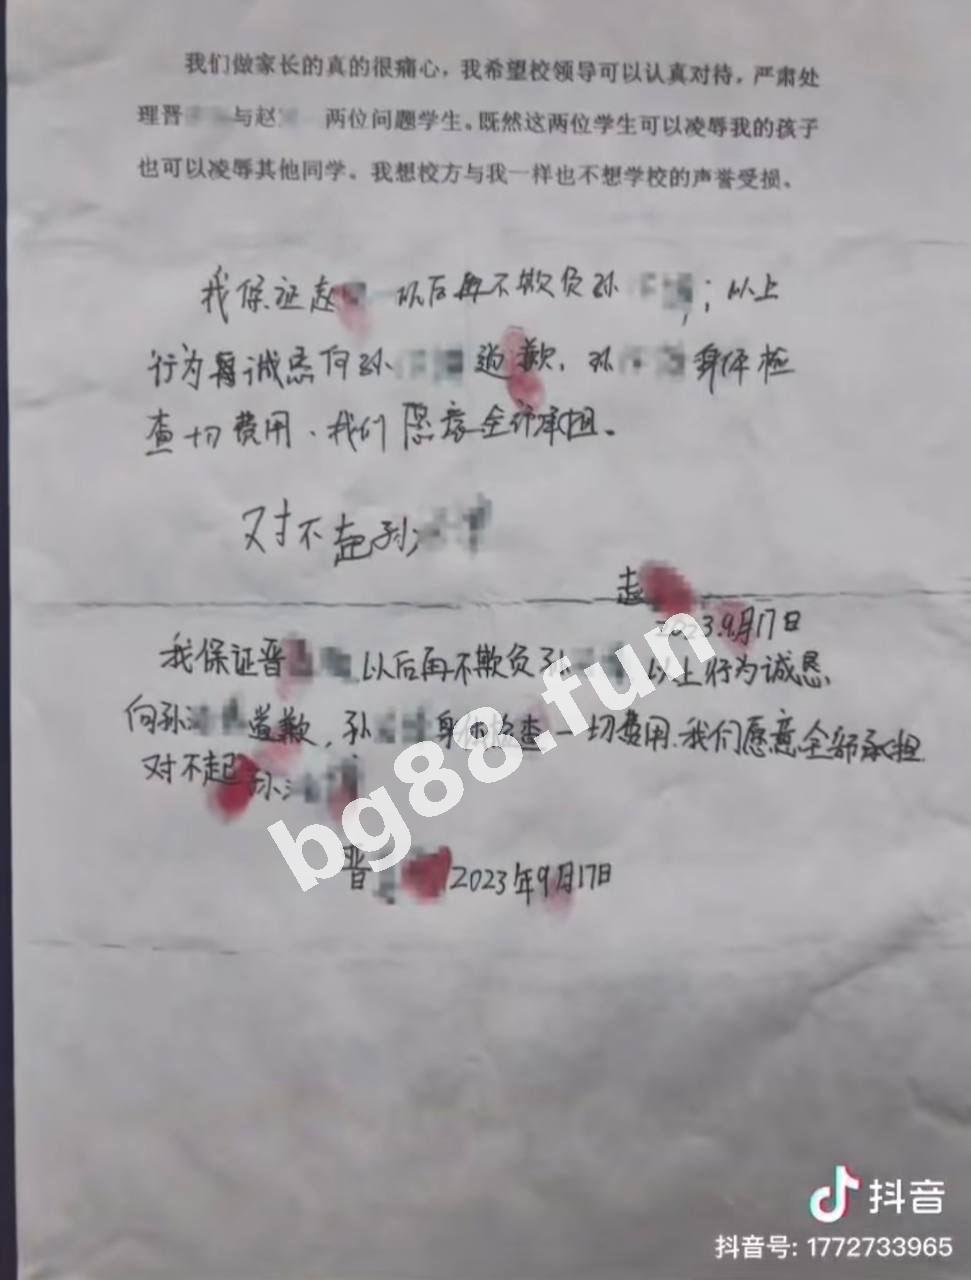 我们做家长的真的很痛心，我希望校领导可以认真对待，严肃处
理晋 与赵 两位问题学生。既然这两位学生可以凌辱我的孩子
也可以凌辱其他同学。我想校方与我一样也不想学校的声誉受损、
我保证赵 以后再不欺负孙 ；以上
行为 诚恳向孙 道歉，孙 身体检
查一切费用、我们愿意全部承担。
对不起孙
赵
2023.9月17日
我保证晋 以后再不欺负孙 以上行为诚恳
向孙 道歉，孙 身体检查一切费用、我们愿意全部承担
对不起孙
晋 2023年9月17日
bg88.fun
抖音
抖音号: 1772733965